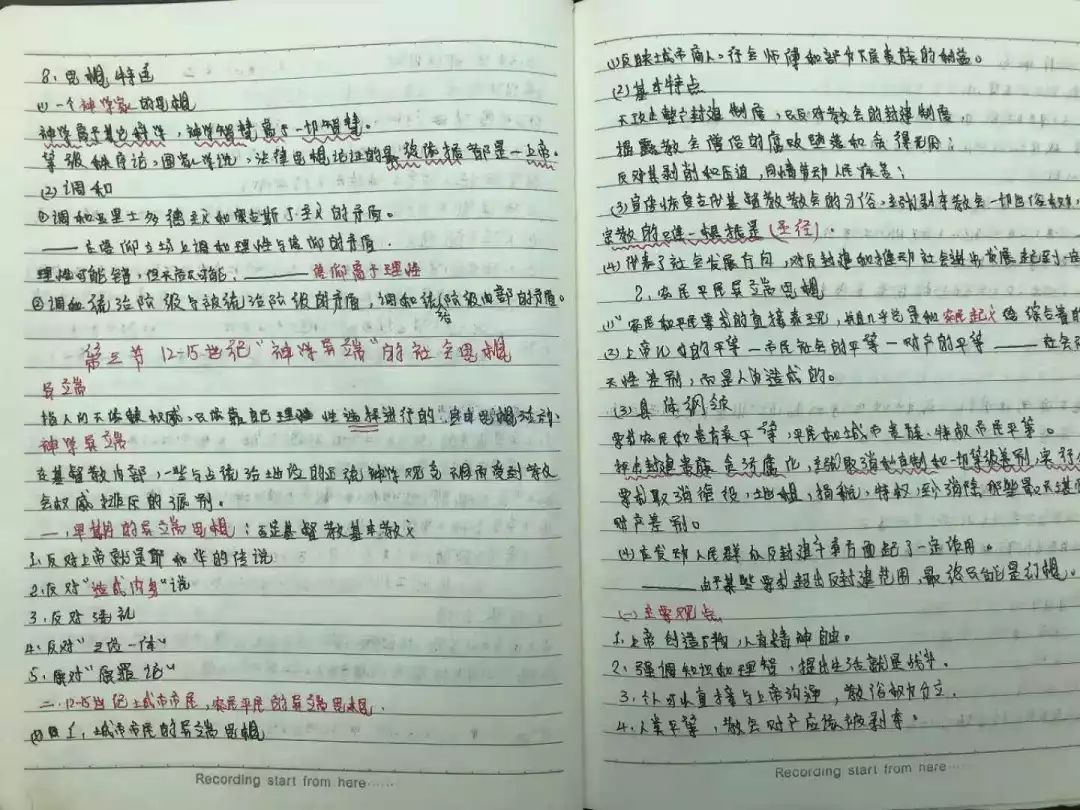 8、思想特适
(1)一个神学家的思想
神学高于其它科学，神学智慧高于一切智慧。
等级秩序论，国家学说，法律思想论证的最终依据都是一上帝。
(2)调和
①调和亚里士多德主义和奥古斯丁主义的矛盾。
——在信仰立场上调和理性与信仰的矛盾.
理性可能错，但天启不可能；——信仰高于理性
②调和统治阶级与被统治阶级的矛盾，调和统治阶级内部的矛盾。
第三节 12-15世纪“神学异端”的社会思想
异端
指人们不依赖权威，只依靠自己理性选择进行的思想活动.
神学异端
在基督教内部，一些与占统治地位的正统神学观念不同而受到等教
会权威排斥的派别.
一.早期的异端思想：否定基督教基本教义
1.反对上帝就是耶和华的传说
2.反对“造成肉身”说
3.反对洗礼
4.反对“三位一体”
5.反对“原罪论”
二.12-15世纪土城市市民，农民平民的异端思想.
1.城市市民的异端思想
(1)反映城市商人、行会师傅和部分下层贵族的利益。
(2)基本特点
不攻击整个封建制度，只反对教会的封建制度，
揭露教会僧侣的腐败堕落和贪得无厌；
反对其剥削和压迫，同情劳动人民疾苦；
(3)宣传恢复古代基督教教会的习俗，主张剥夺教会一切世俗权利，
宗教的唯一根据是(圣经).
(4)代表了社会发展方向，对反封建和推动社会进步发展起到一定
2、农民平民异端思想
(1)“农民和平民要求的直接表现，并且几乎总是和农民起义结合着的
(2)上帝儿女的平等—市民社会的平等—财产的平等——社会
天性差别，而是人为造成的。
(3)具体纲领
要求农民和贵族平等，平民和城市贵族、特权市民平等。
抨击封建贵族贪污腐化，主张取消农奴制和一切等级差别，实行
要求取消徭役，地租，捐税，特权，到消除那些最不堪
财产差别。
(4)在发动人民群众反封建斗争方面起了一定作用。
——由于某些要求超出反封建范围，最终只能是幻想。
(一)主要观点
1.上帝创造万物，人有精神自由。
2.强调知识和理智，提出生活就是战斗.
3.人可以直接与上帝沟通，教俗权力分立.
4.人类平等，教会财产应该被剥夺。
Recording start from here······
Recording start from here······